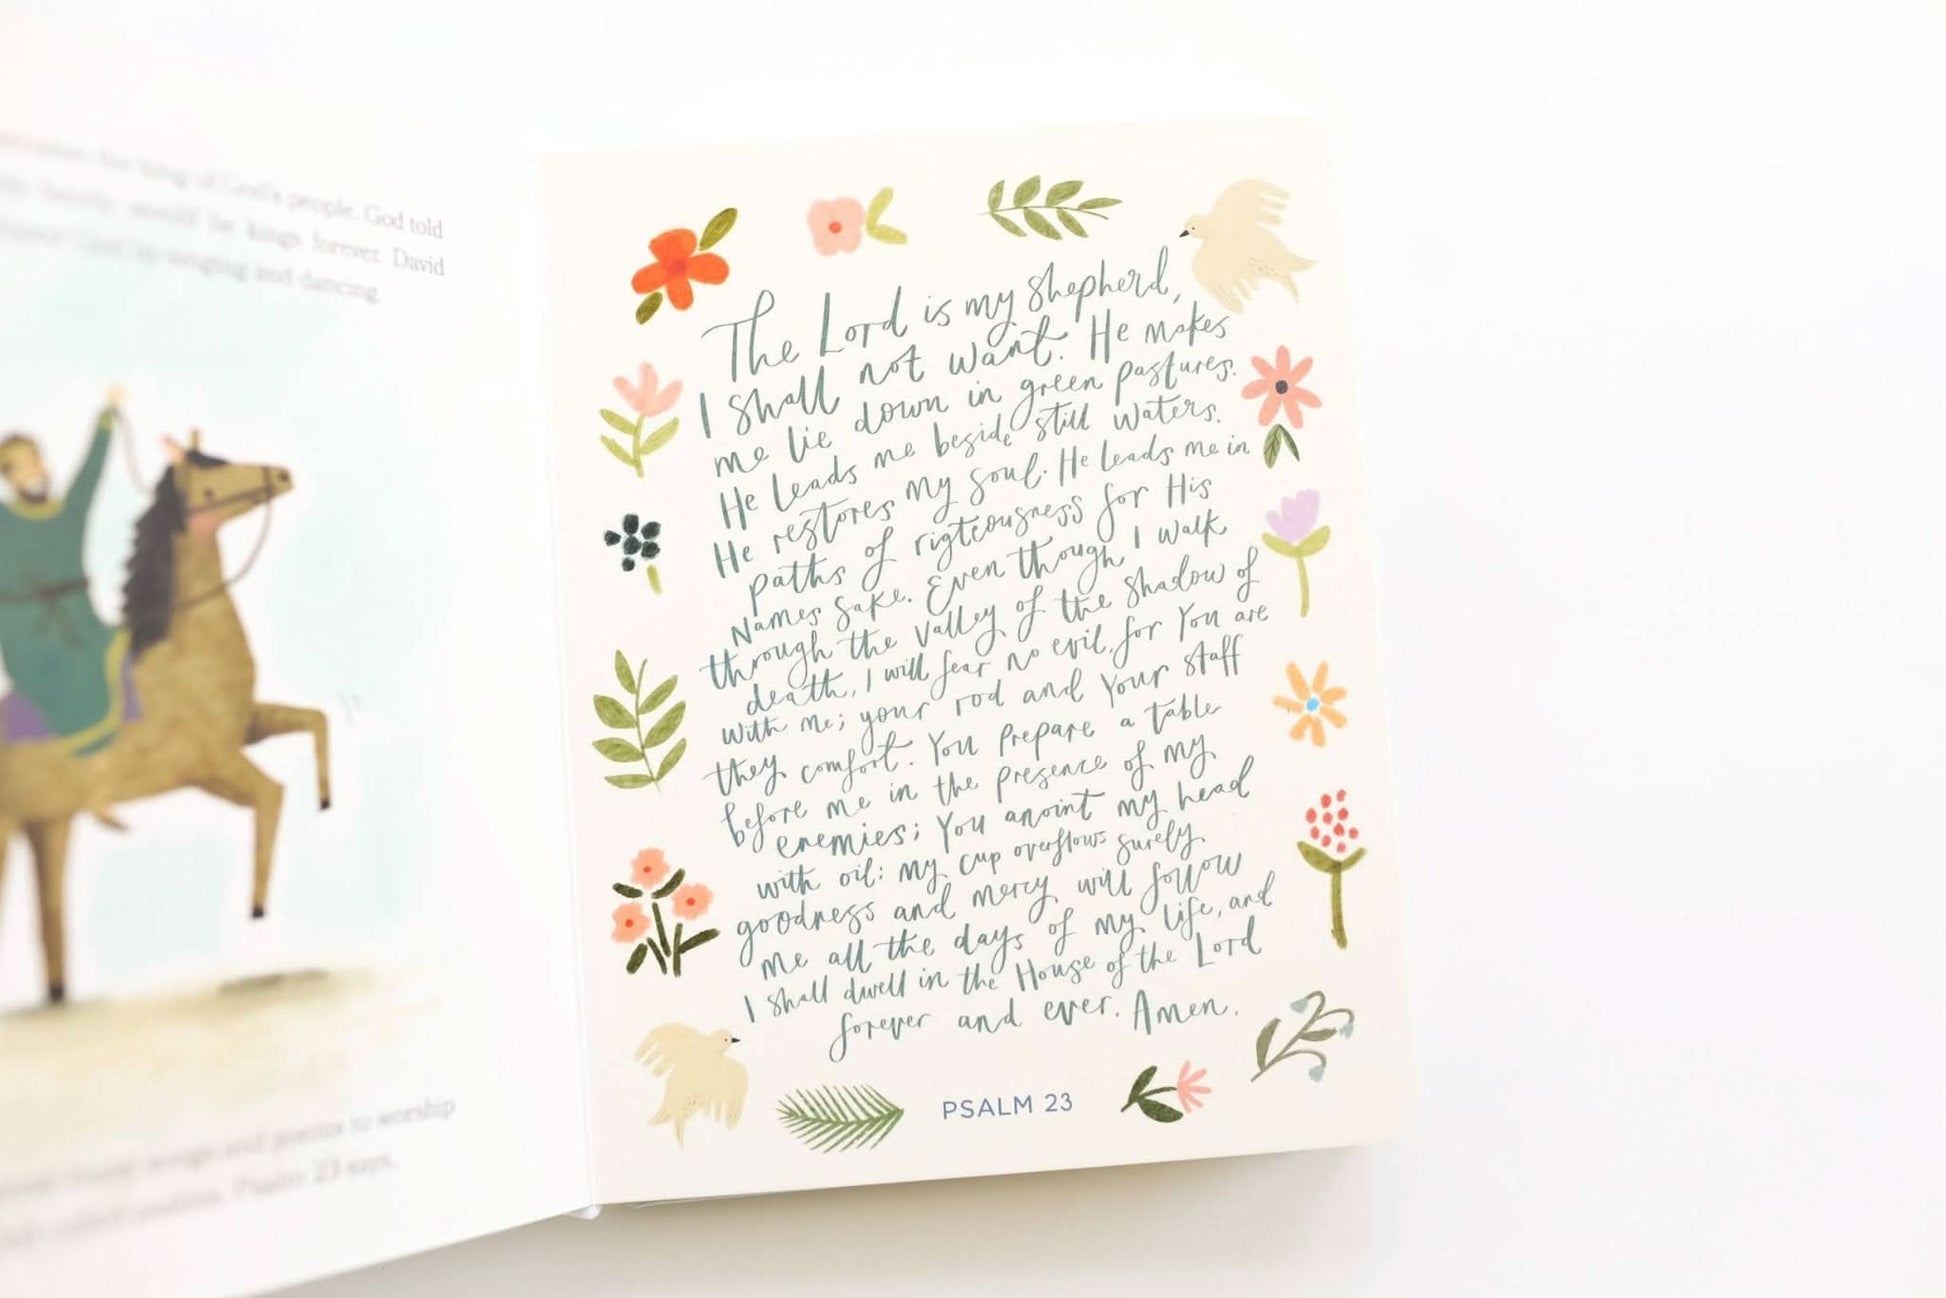 king of God's people. God told
family would be kings forever. David
by singing and dancing.
songs and poems to worship
called psalms. Psalm 23 says,
The Lord is my shepherd,
I shall not want. He makes
me lie down in green pastures.
He leads me beside still waters.
He restores my soul. He leads me in
paths of rigteousness for His
Names sake. Even though I walk
through the valley of the shadow of
death, I will fear no evil, for You are
with me; your rod and Your staff
they comfort. You prepare a table
before me in the presence of my
enemies; You anoint my head
with oil: my cup overflows surely
goodness and mercy will follow
me all the days of my life, and
I shall dwell in the House of the Lord
forever and ever. Amen.
PSALM 23